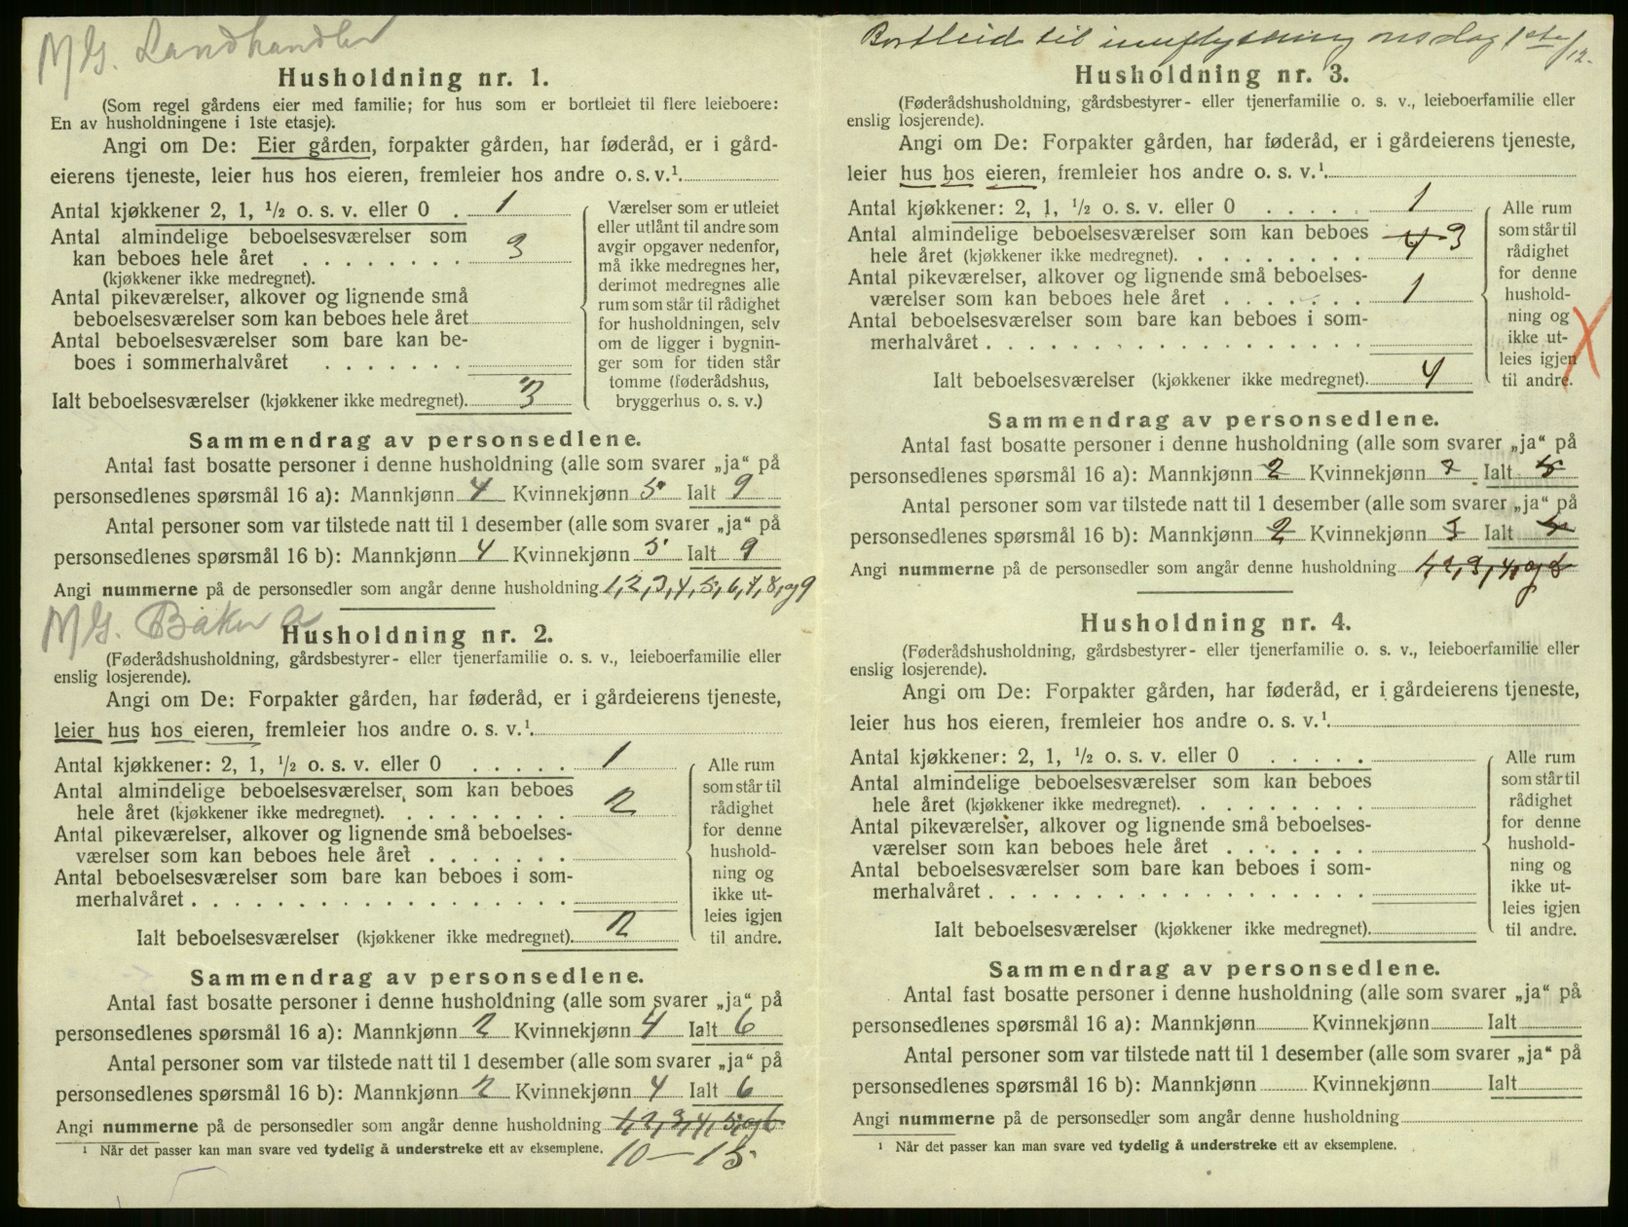 M/G. Landhandler
Husholdning nr. 1.
(Som regel gårdens eier med familie; for hus som er bortleiet til flere leieboere:
En av husholdningene i 1ste etasje).
Angi om De: Eier gården, forpakter gården, har føderåd, er i gård-
eierens tjeneste, leier hus hos eieren, fremleier hos andre o. s. v.¹
Antal kjøkkener 2, 1, ½ o. s. v. eller 0 . 1
Antal almindelige beboelsesværelser som
kan beboes hele året . . . . . . . . 3
(kjøkkener ikke medregnet).
Antal pikeværelser, alkover og lignende små
beboelsesværelser som kan beboes hele året
Antal beboelsesværelser som bare kan be-
boes i sommerhalvåret . . . . . . .
Ialt beboelsesværelser (kjøkkener ikke medregnet). 3
Værelser som er utleiet
eller utlånt til andre som
avgir opgaver nedenfor,
må ikke medregnes her,
derimot medregnes alle
rum som står til rådighet
for husholdningen, selv
om de ligger i bygnin-
ger som for tiden står
tomme (føderådshus,
bryggerhus o. s. v.)
Sammendrag av personsedlene.
Antal fast bosatte personer i denne husholdning (alle som svarer „ja“ på
personsedlenes spørsmål 16 a): Mannkjønn 4 Kvinnekjønn 5 Ialt 9
Antal personer som var tilstede natt til 1 desember (alle som svarer „ja“ på
personsedlenes spørsmål 16 b): Mannkjønn 4 Kvinnekjønn 5 Ialt 9
Angi nummerne på de personsedler som angår denne husholdning 1, 2, 3, 4, 5, 6, 7, 8, og 9
M/G. Baker a
Husholdning nr. 2.
(Føderådshusholdning, gårdsbestyrer- eller tjenerfamilie o. s. v., leieboerfamilie eller
enslig losjerende).
Angi om De: Forpakter gården, har føderåd, er i gårdeierens tjeneste,
leier hus hos eieren, fremleier hos andre o. s. v.¹
Antal kjøkkener: 2, 1, ½ o. s. v. eller 0 . . . . . 1
Antal almindelige beboelsesværelser som kan beboes
hele året (kjøkkener ikke medregnet). . . . . . . . . 2
Antal pikeværelser, alkover og lignende små beboelses-
værelser som kan beboes hele året . . . . . . .
Antal beboelsesværelser som bare kan beboes i som-
merhalvåret . . . . . . . . . . . . . . . . . .
Ialt beboelsesværelser (kjøkkener ikke medregnet). 2
Alle rum
som står til
rådighet
for denne
hushold-
ning og
ikke ut-
leies igjen
til andre.
Sammendrag av personsedlene.
Antal fast bosatte personer i denne husholdning (alle som svarer „ja“ på
personsedlenes spørsmål 16 a): Mannkjønn 2 Kvinnekjønn 4 Ialt 6
Antal personer som var tilstede natt til 1 desember (alle som svarer „ja“ på
personsedlenes spørsmål 16 b): Mannkjønn 2 Kvinnekjønn 4 Ialt 6
Angi nummerne på de personsedler som angår denne husholdning 1, 2, 3, 4, 5, og 6
¹ Når det passer kan man svare ved tydelig å understreke ett av eksemplene. 10 – 15
Bortleid til innflytning onsdag 1ste/12.
Husholdning nr. 3.
(Føderådshusholdning, gårdsbestyrer- eller tjenerfamilie o. s. v., leieboerfamilie eller
enslig losjerende).
Angi om De: Forpakter gården, har føderåd, er i gårdeierens tjeneste,
leier hus hos eieren, fremleier hos andre o. s. v.¹
Antal kjøkkener: 2, 1, ½ o. s. v. eller 0 . . . . . 1
Antal almindelige beboelsesværelser som kan beboes
hele året (kjøkkener ikke medregnet). . . . . . . . . 4 3
Antal pikeværelser, alkover og lignende små beboelses-
værelser som kan beboes hele året . . . . . . . 1
Antal beboelsesværelser som bare kan beboes i som-
merhalvåret . . . . . . . . . . . . . . . . . .
Ialt beboelsesværelser (kjøkkener ikke medregnet). 4
Alle rum
som står til
rådighet
for denne
hushold-
ning og
ikke ut-
leies igjen
til andre.
X
Sammendrag av personsedlene.
Antal fast bosatte personer i denne husholdning (alle som svarer „ja“ på
personsedlenes spørsmål 16 a): Mannkjønn 2 Kvinnekjønn 3 Ialt 5
Antal personer som var tilstede natt til 1 desember (alle som svarer „ja“ på
personsedlenes spørsmål 16 b): Mannkjønn 2 Kvinnekjønn 3 Ialt 5
Angi nummerne på de personsedler som angår denne husholdning 1, 2, 3, 4, og 5
Husholdning nr. 4.
(Føderådshusholdning, gårdsbestyrer- eller tjenerfamilie o. s. v., leieboerfamilie eller
enslig losjerende).
Angi om De: Forpakter gården, har føderåd, er i gårdeierens tjeneste,
leier hus hos eieren, fremleier hos andre o. s. v.¹
Antal kjøkkener: 2, 1, ½ o. s. v. eller 0 . . . . .
Antal almindelige beboelsesværelser som kan beboes
hele året (kjøkkener ikke medregnet). . . . . . . . .
Antal pikeværelser, alkover og lignende små beboelses-
værelser som kan beboes hele året . . . . . . .
Antal beboelsesværelser som bare kan beboes i som-
merhalvåret . . . . . . . . . . . . . . . . . .
Ialt beboelsesværelser (kjøkkener ikke medregnet).
Alle rum
som står til
rådighet
for denne
hushold-
ning og
ikke ut-
leies igjen
til andre.
Sammendrag av personsedlene.
Antal fast bosatte personer i denne husholdning (alle som svarer „ja“ på
personsedlenes spørsmål 16 a): Mannkjønn Kvinnekjønn Ialt
Antal personer som var tilstede natt til 1 desember (alle som svarer „ja“ på
personsedlenes spørsmål 16 b): Mannkjønn Kvinnekjønn Ialt
Angi nummerne på de personsedler som angår denne husholdning
¹ Når det passer kan man svare ved tydelig å understreke ett av eksemplene.